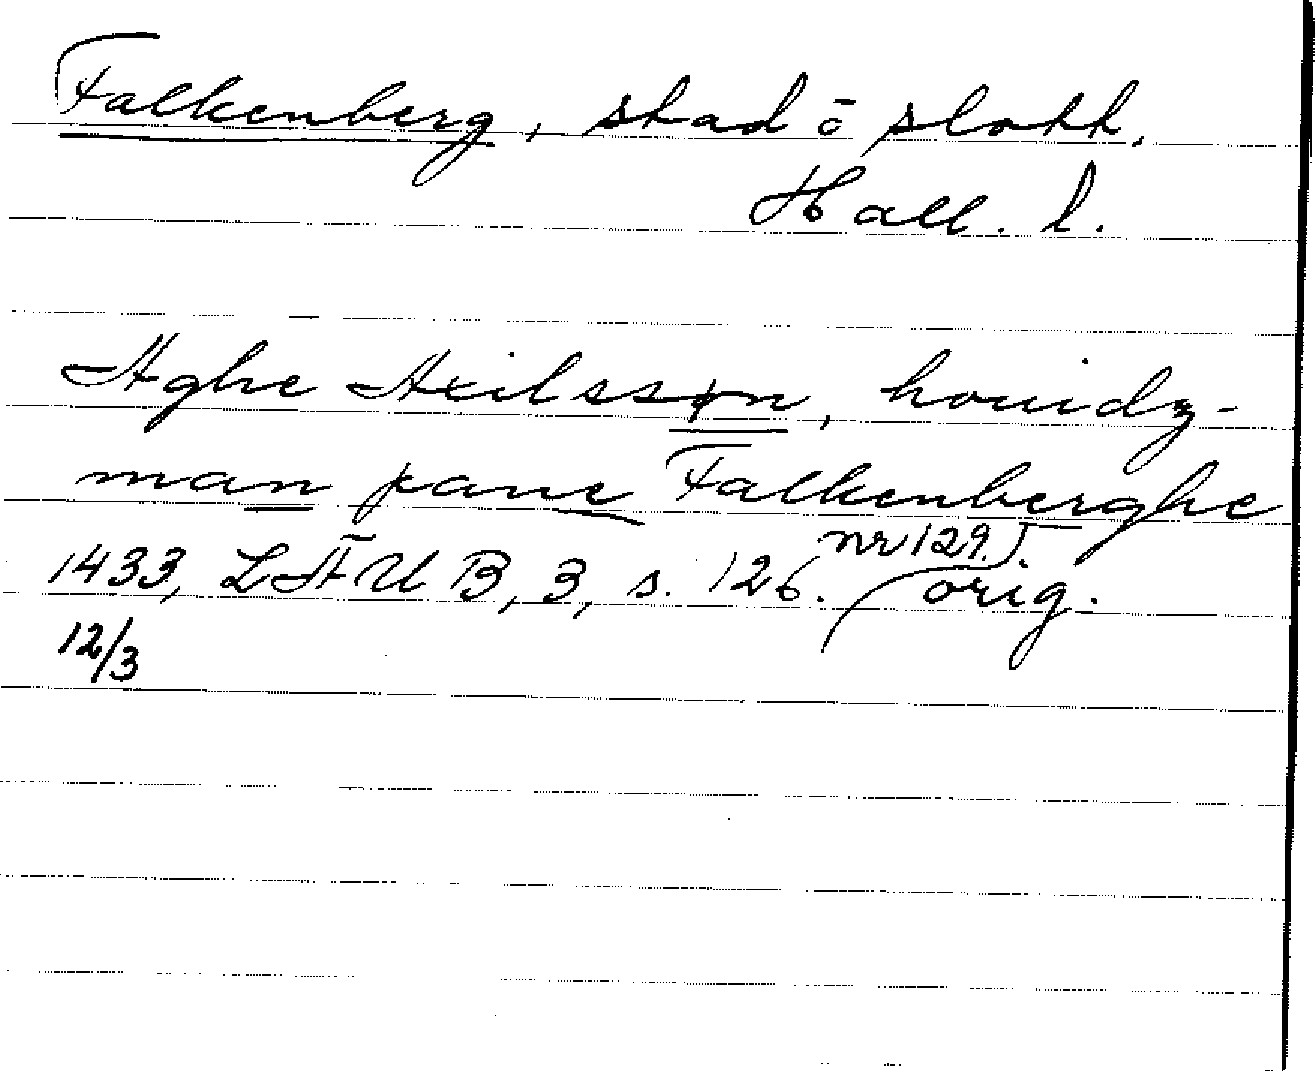 Falkenberg, stad ō slott.
Hall. l.
Aghe Axilssøn, houidz-
man pane Falkenberghe
nr 129.
1433, LÄUB, 3, s. 126. orig.
12/3